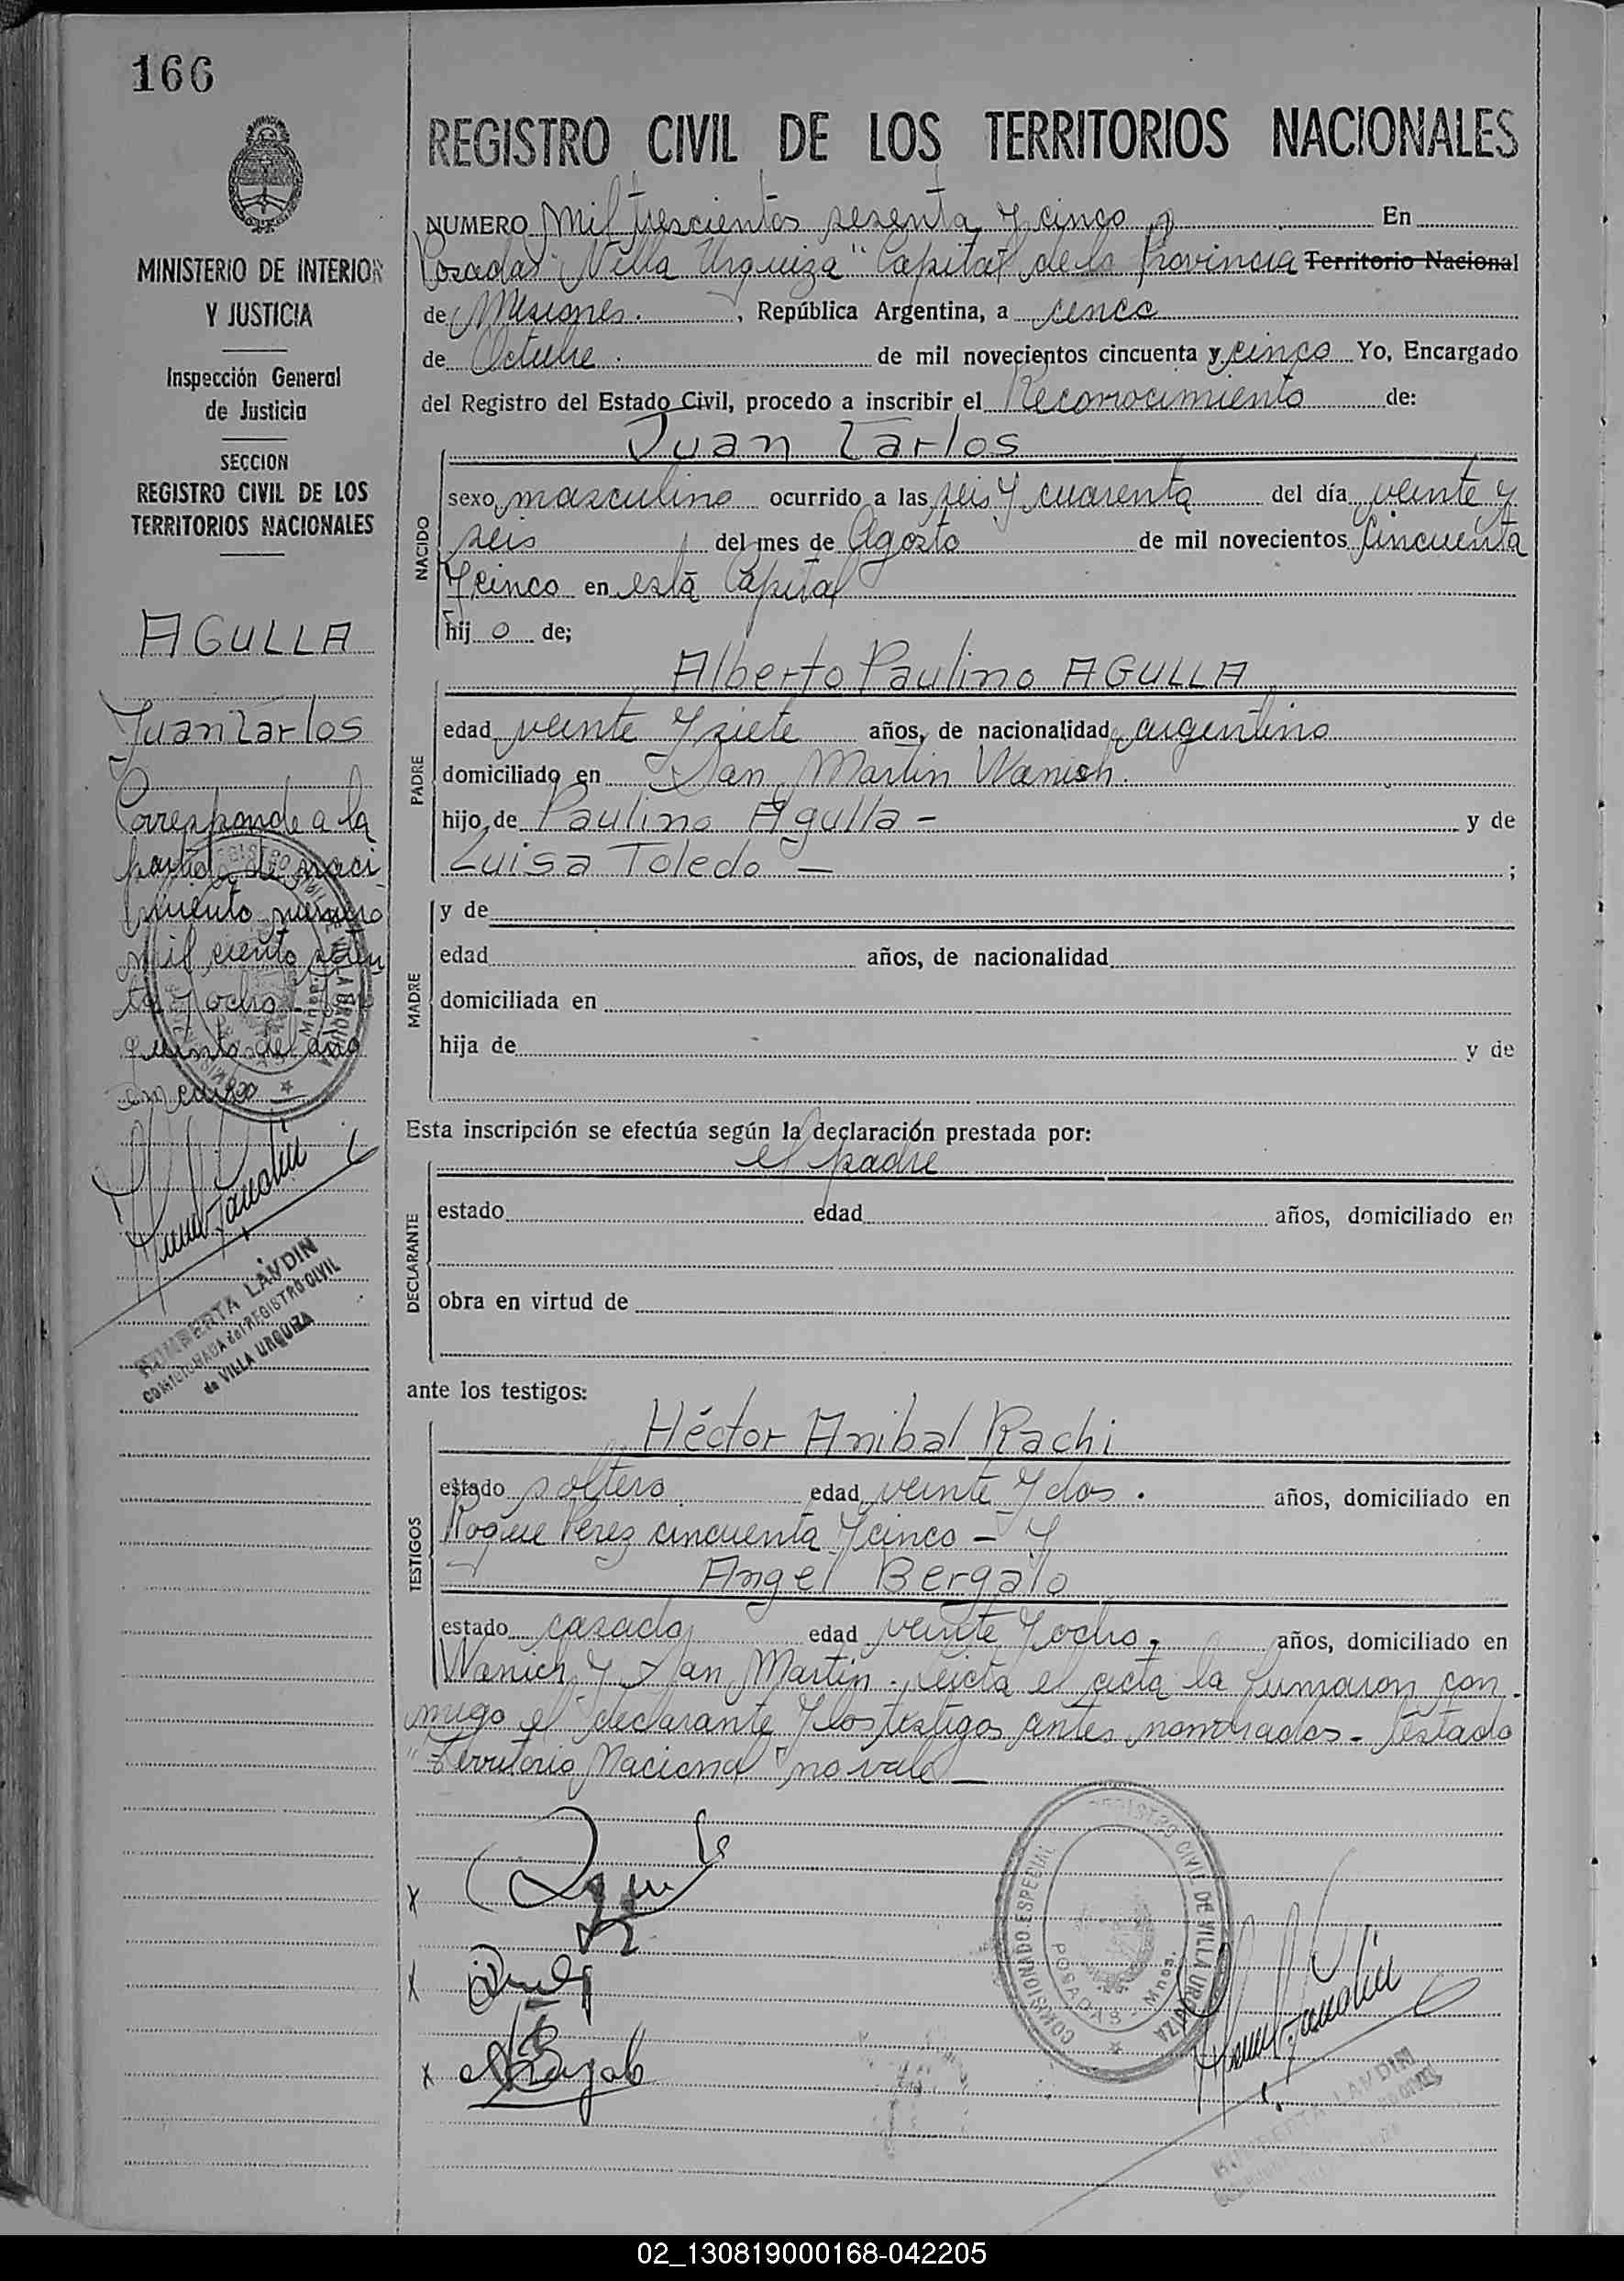 166
MINISTERIO DE INTERIOR
Y JUSTICIA
Inspección General
de Justicia
SECCION
REGISTRO CIVIL DE LOS
TERRITORIOS NACIONALES
AGULLA
Juan Carlos
Corresponde a la
partida de naci
miento número
mil ciento seten
ta y ocho
del año
en curso
HUMBERTA LANDIN
COMISIONADA del REGISTRO CIVIL
de VILLA URQUIZA
REGISTRO CIVIL DE LOS TERRITORIOS NACIONALES
NUMERO Mil trescientos sesenta y cinco En
Posadas "Villa Urquiza" Capital de la Provincia Territorio Nacional
de Misiones. , República Argentina, a cinco
de Octubre. de mil novecientos cincuenta y cinco Yo, Encargado
del Registro del Estado Civil, procedo a inscribir el Reconocimiento de:
Juan Carlos
NACIDO
sexo masculino ocurrido a las seis y cuarenta del día veinte y
seis del mes de Agosto de mil novecientos Cincuenta
y cinco en esta Capital
hij o de;
Alberto Paulino AGULLA
PADRE
edad veinte y siete años, de nacionalidad argentino
domiciliado en San Martin Wanich.
hijo de Paulino Agulla - y de
Luisa Toledo — ;
MADRE
y de
edad años, de nacionalidad
domiciliada en
hija de y de
Esta inscripción se efectúa según la declaración prestada por:
el padre
DECLARANTE
estado edad años, domiciliado en
obra en virtud de
ante los testigos:
Héctor Anibal Rachi
TESTIGOS
estado soltero edad veinte y dos. años, domiciliado en
Roque Perez cincuenta y cinco - y
Angel Bergalo
estado casado edad veinte y ocho, años, domiciliado en
Wanich y San Martin. Leida el acta la firmaron con
migo el declarante y los testigos antes nombrados - Testado
"Territorio Nacional" no vale —
COMISIONADO ESPECIAL REGISTRO CIVIL DE VILLA URQUIZA
POSADAS - Mnes.
HUMBERTA LANDIN
02_130819000168-042205